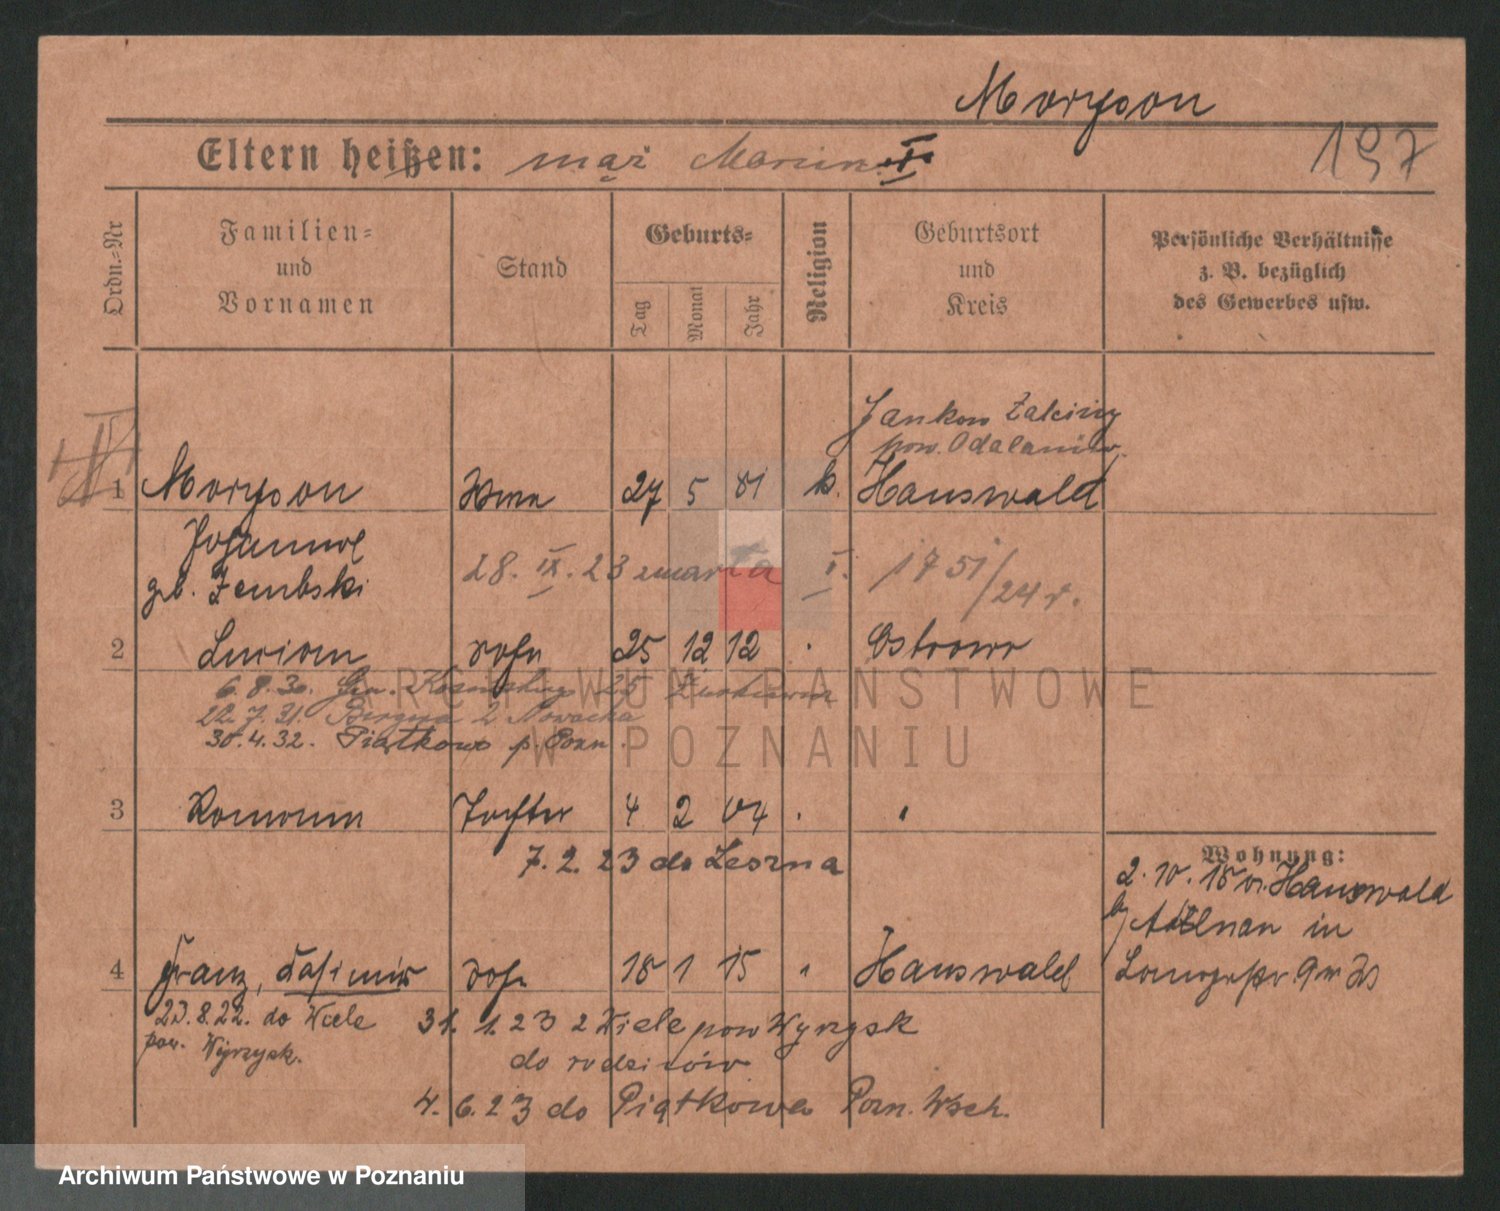 Moryson
Eltern heißen: mąż Marcin
197
Ordn.-Nr
Familien-
und
Vornamen
Stand
Geburts-
Tag
Monat
Jahr
Religion
Geburtsort
und
Kreis
Persönliche Verhältnisse
z. B. bezüglich
des Gewerbes usw.
Jankow Zaleśny
pow. Odalanów.
1 Moryson 27 5 81 k. Hauswald
Johanna
gb. Zembski
28. IX. 23 zmarła I. 1751/24 r.
2 Lucian Sohn 25 12 12 Ostrowo
6.8.30.
22.7.31. Nowacka
30.4.32. Piątkowo p. Pozn.
3 Tochter 4 2 04
7. 2. 23 do Leszna
Wohnung:
2. 10. 18 v. Hauswald
in
4 Franz, Casimir Sohn 18 1 15 Hauswald
23.8.22. do Wiele
pow. Wyrzysk.
31. 1. 23 z Wiele pow Wyrzysk
do rodziców
4. 6. 23 do Piątkowa Pozn. Wsch.
ARCHIWUM PAŃSTWOWE
W POZNANIU
Archiwum Państwowe w Poznaniu